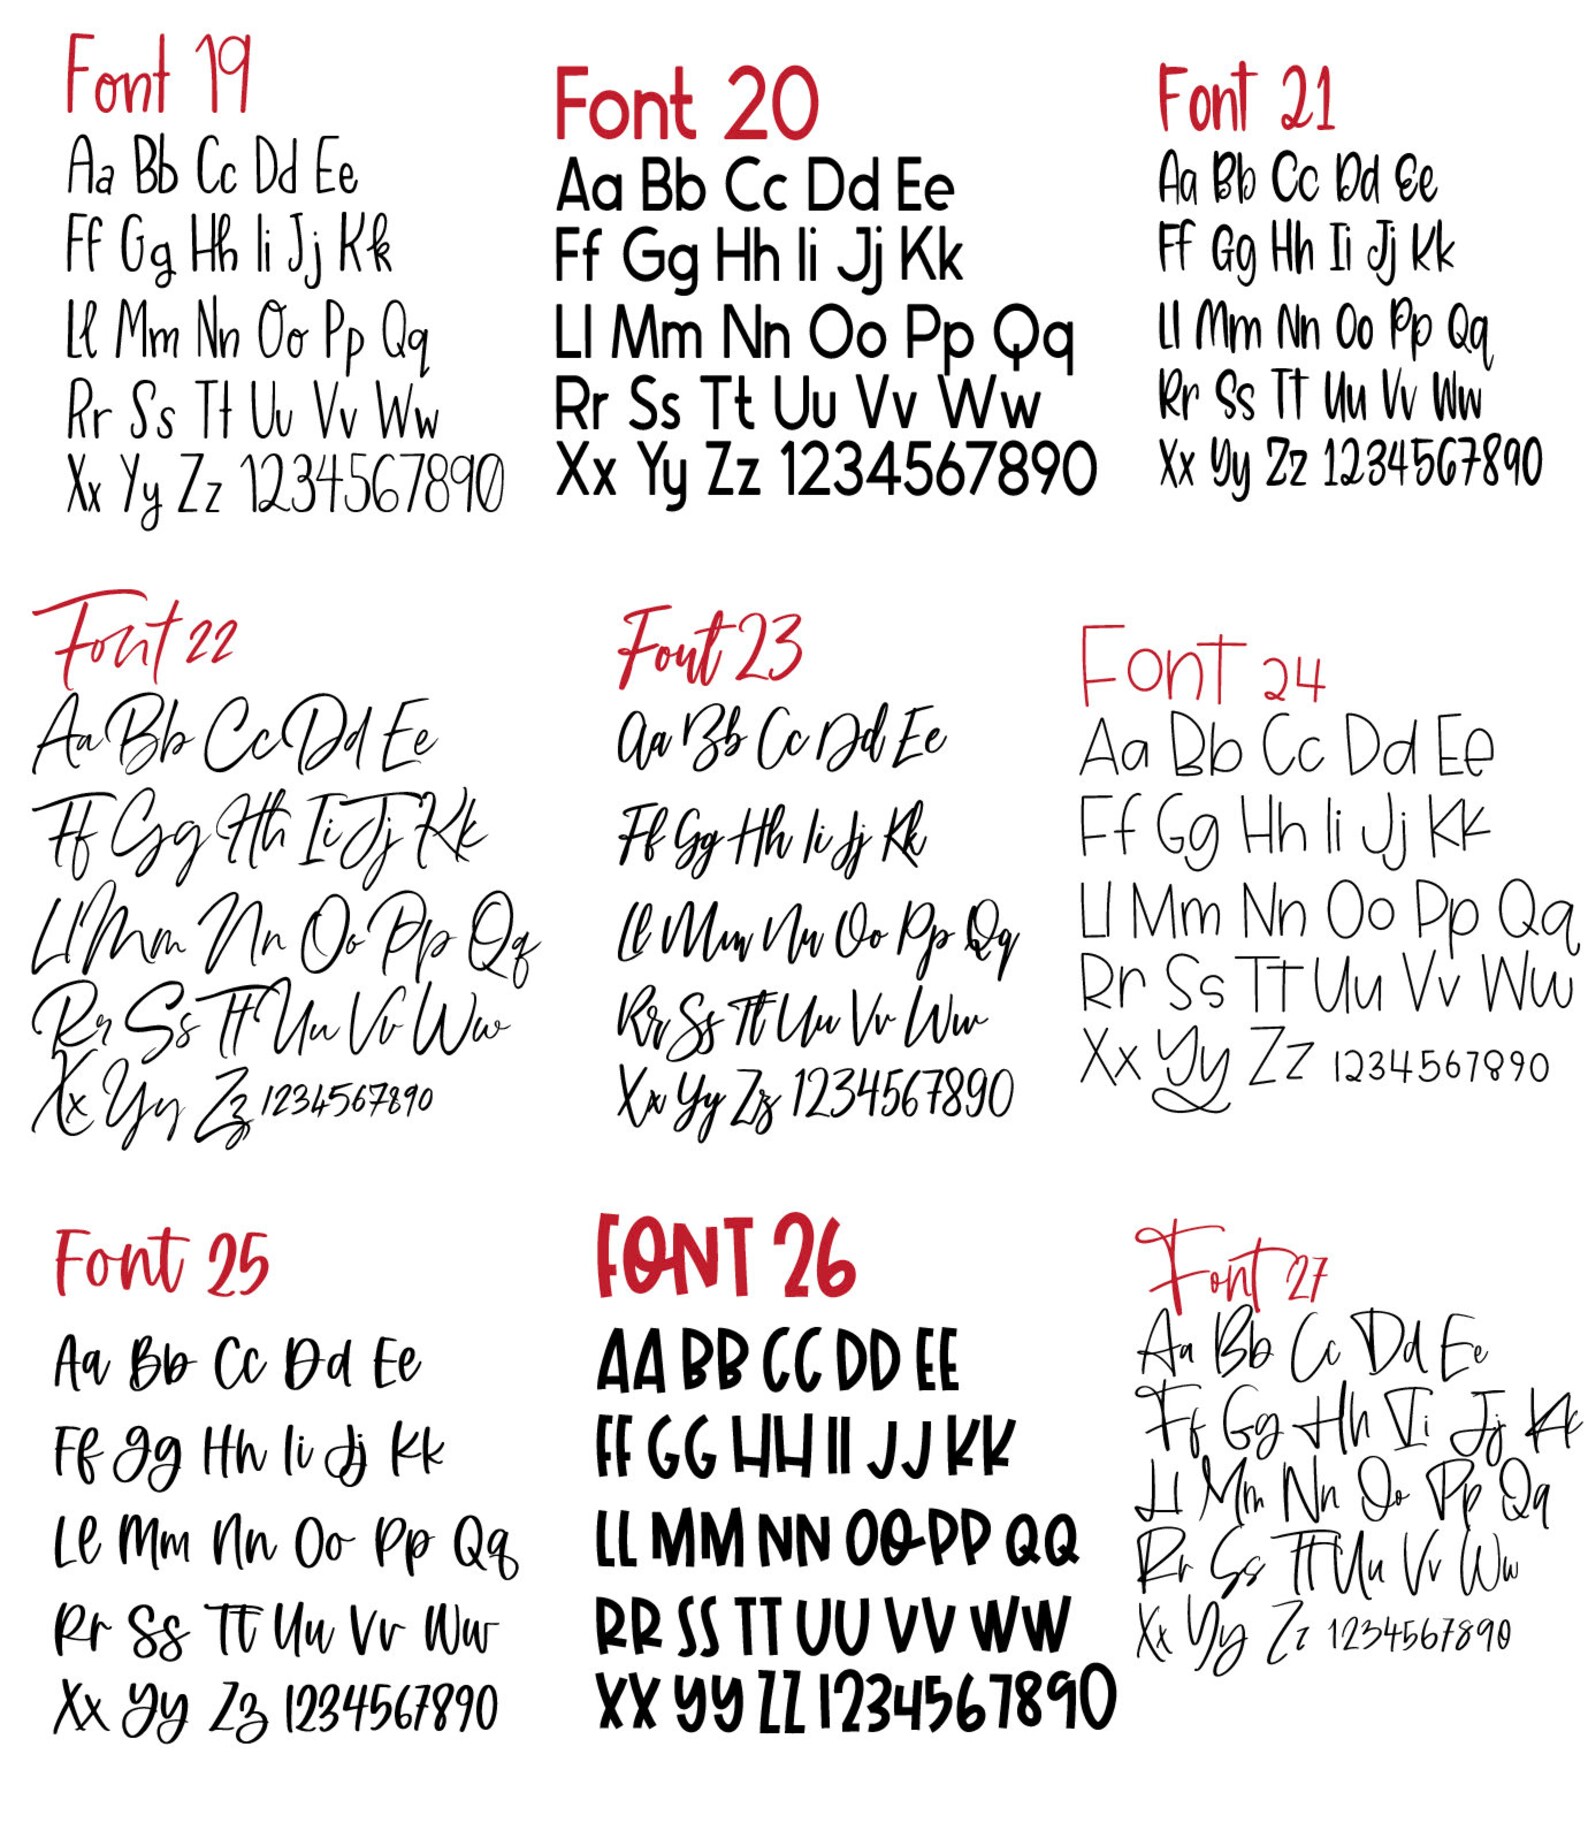 Font 19
Aa Bb Cc Dd Ee
Ff Gg Hh Ii Jj Kk
Ll Mm Nn Oo Pp Qq
Rr Ss Tt Uu Vv Ww
Xx Yy Zz 1234567890
Font 20
Aa Bb Cc Dd Ee
Ff Gg Hh Ii Jj Kk
Ll Mm Nn Oo Pp Qq
Rr Ss Tt Uu Vv Ww
Xx Yy Zz 1234567890
Font 21
Aa Bb Cc Dd Ee
Ff Gg Hh Ii Jj Kk
Ll Mm Nn Oo Pp Qq
Rr Ss Tt Uu Vv Ww
Xx Yy Zz 1234567890
Font 22
Aa Bb Cc Dd Ee
Ff Gg Hh Ii Jj Kk
Ll Mm Nn Oo Pp Qq
Rr Ss Tt Uu Vv Ww
Xx Yy Zz 1234567890
Font 23
Aa Bb Cc Dd Ee
Ff Gg Hh Ii Jj Kk
Ll Mm Nn Oo Pp Qq
Rr Ss Tt Uu Vv Ww
Xx Yy Zz 1234567890
Font 24
Aa Bb Cc Dd Ee
Ff Gg Hh Ii Jj Kk
Ll Mm Nn Oo Pp Qq
Rr Ss Tt Uu Vv Ww
Xx Yy Zz 1234567890
Font 25
Aa Bb Cc Dd Ee
Ff Gg Hh Ii Jj Kk
Ll Mm Nn Oo Pp Qq
Rr Ss Tt Uu Vv Ww
Xx Yy Zz 1234567890
FONT 26
AA BB CC DD EE
FF GG HH II JJ KK
LL MM NN OO PP QQ
RR SS TT UU VV WW
XX YY ZZ 1234567890
Font 27
Aa Bb Cc Dd Ee
Ff Gg Hh Ii Jj Kk
Ll Mm Nn Oo Pp Qq
Rr Ss Tt Uu Vv Ww
Xx Yy Zz 1234567890